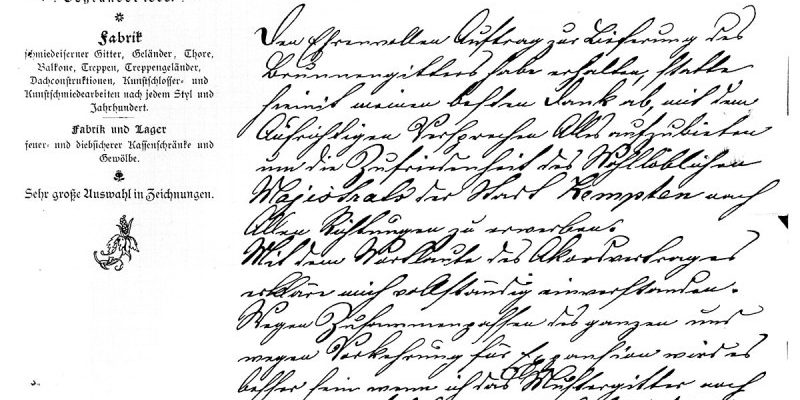 Fabrik
schmiedeiserner Gitter, Geländer, Thore,
Balkone, Treppen, Treppengeländer,
Dachconstruktionen, Kunstschlosser- und
Kunstschmiedearbeiten nach jedem Styl und
Jahrhundert.
Fabrik und Lager
feuer- und diebsicherer Kassenschränke und
Gewölbe.
Sehr große Auswahl in Zeichnungen.
Den Ehrenvollen Auftrag zur Lieferung des
Brunnengitters habe erhalten, statte
hiemit meinen besten Dank ab, mit dem
Aufrichtigen Versprechen Alles aufzubieten
um die Zufriedenheit des Wohllöblichen
Magistrats der Stadt Kempten nach
Allen Richtungen zu erwerben.
Mit dem Wortlaute des Akordvertrages
erkläre mich vollständig einverstanden.
Wegen Zusammenpassen des ganzen und
wegen Vorkehrung für Expansion wird es
besser sein wenn ich das Mustergitter nach